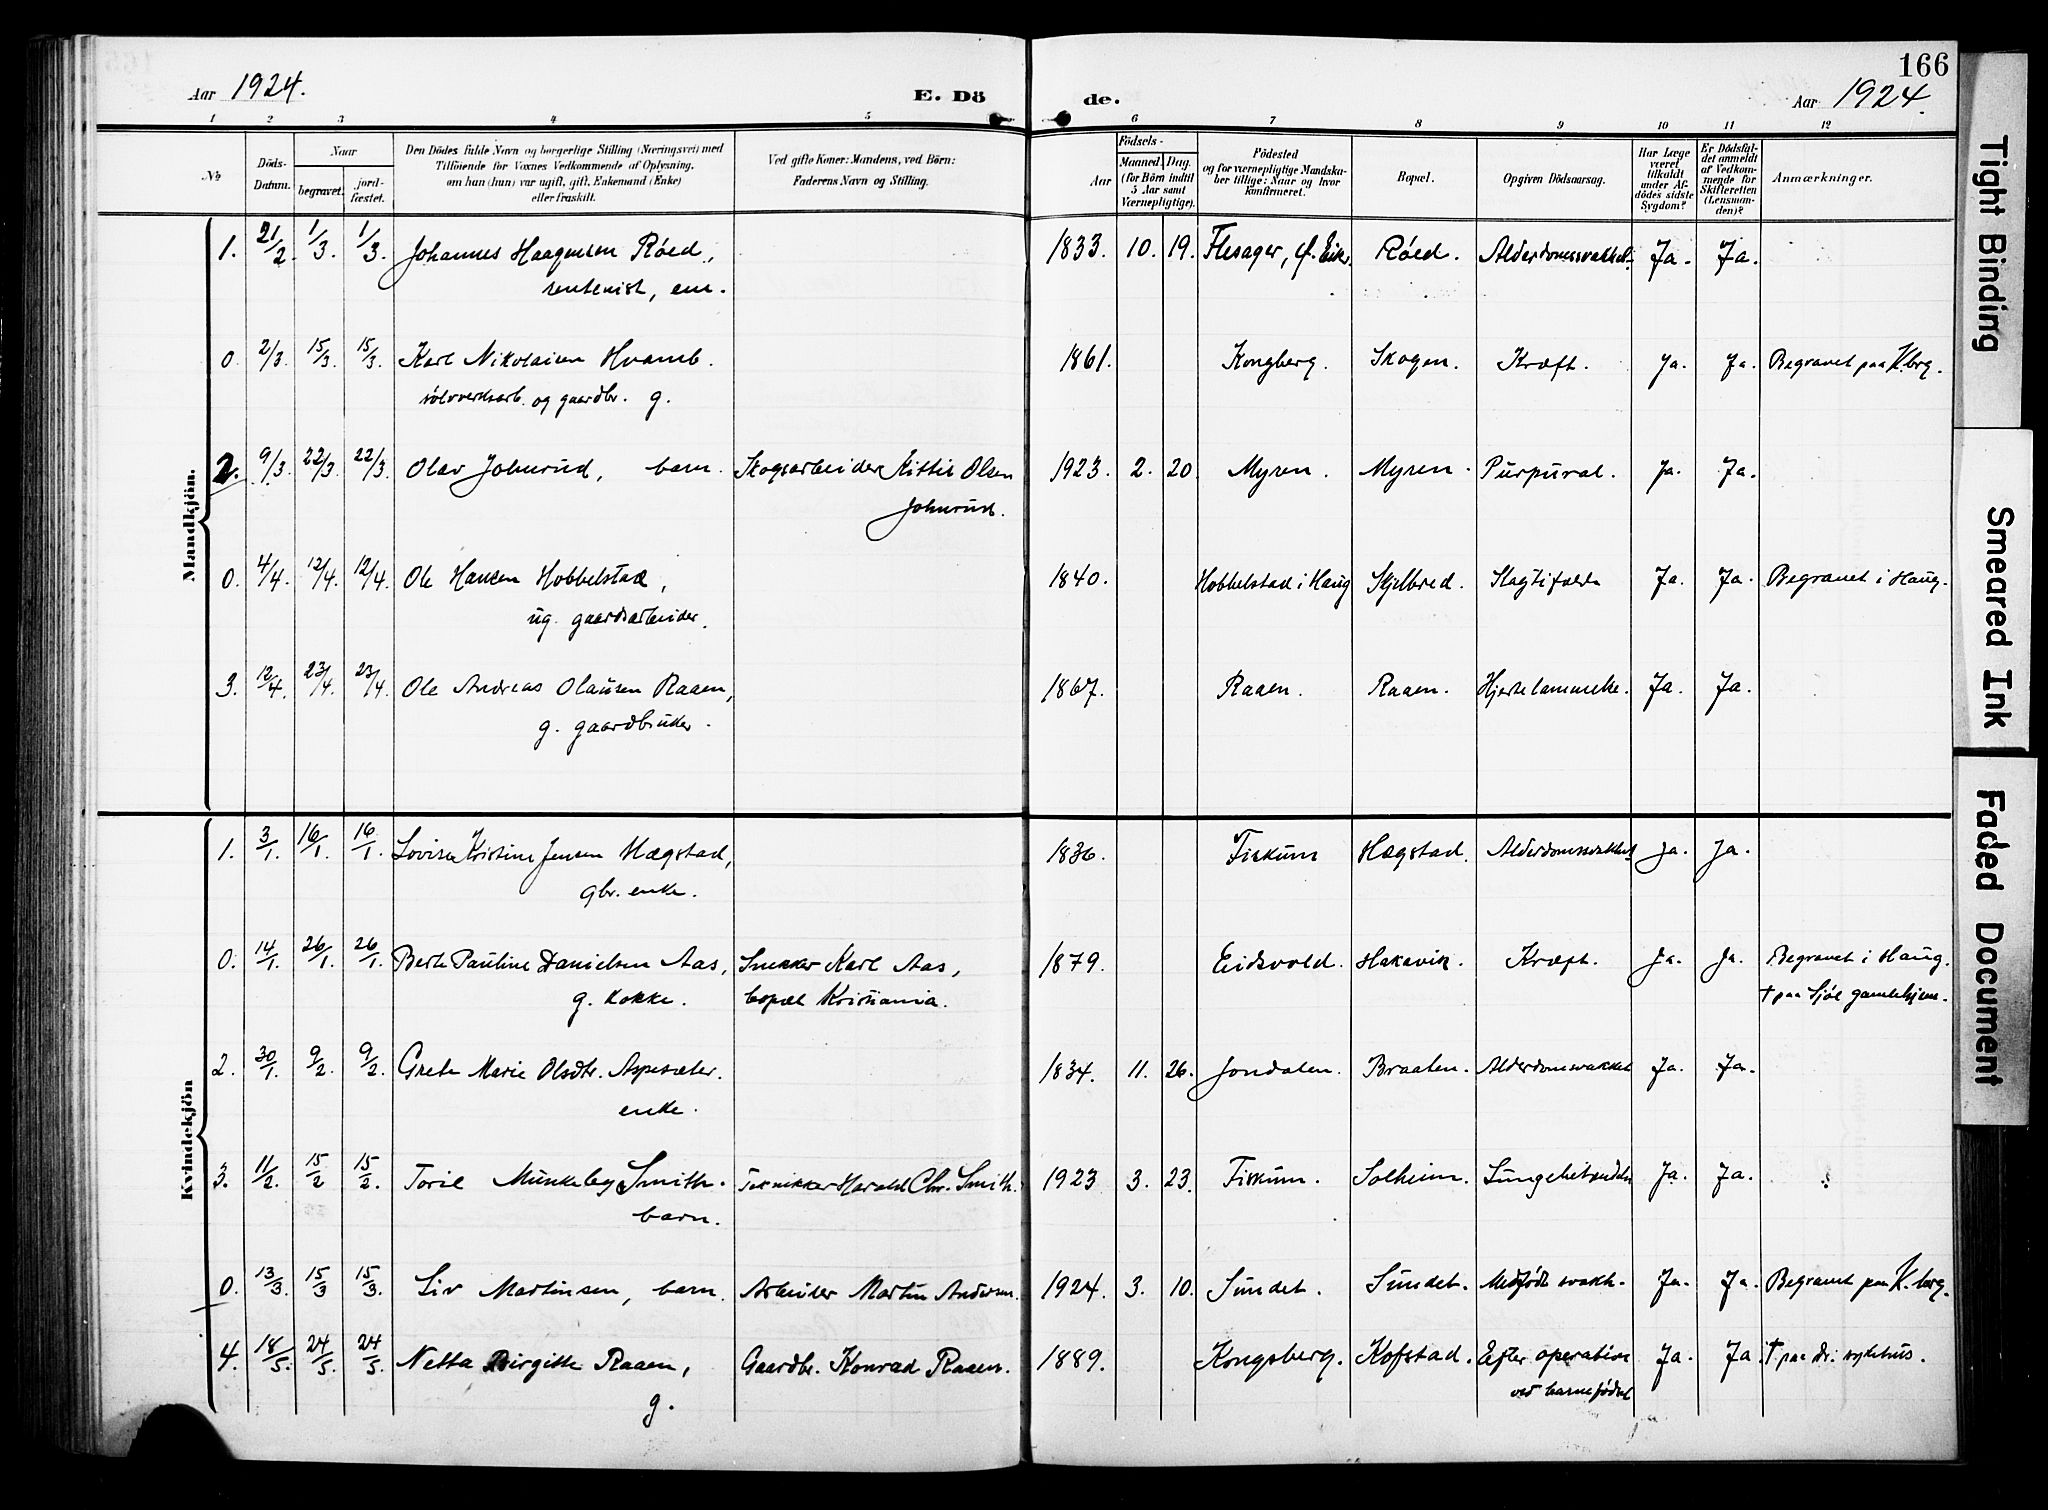 166
Aar 1924.
E. Dö
de.
Aar 1924.
1 2 3 4 5 6 7 8 9 10 11 12
No
Döds-Datum.
Naar
begravet.
jord-fæstet.
Den Dödes fulde Navn og borgerlige Stilling (Næringsvei) med
Tilföiende for Voxnes Vedkommende af Oplysning,
om han (hun) var ugift, gift, Enkemand (Enke)
eller fraskilt.
Ved gifte Koner: Mandens, ved Börn:
Faderens Navn og Stilling.
Födsels-
Aar
Maaned. Dag.
(for Börn indtil
5 Aar samt
Værnepligtige).
Födested
og for værnepligtige Mandska-
ber tillige: Naar og hvor
konfirmeret.
Bopæl.
Opgiven Dödsaarsag.
Har Læge
været
tilkaldt
under Af-
dödes sidste
Sygdom?
Er Dödsfal-
det anmeldt
af Vedkom-
mende for
Skifteretten
(Lensman-
den)?
Anmærkninger.
Mandkjön.
1. 21/2 1/3. 1/3. Johannes Haagensen Röed, 1833. 10. 19. Flesager, Ø. Eiker. Röed. Alderdomssvakhet. Ja. Ja.
rentenist, em.
0. 2/3. 15/3. 15/3. Karl Nikolaisen Hvamb. 1861. Kongberg. Skogen. Kræft. Ja. Ja. Begravet paa K.brg.
sölvverksarb. og gaardbr. g.
2. 9/3. 22/3. 22/3. Olav Johnrud, barn. Skogsarbeider Kittil Olsen 1923. 2. 20. Myren. Myren. Purpural. Ja. Ja.
Johnrud.
0. 4/4. 12/4. 12/4. Ole Hansen Hobbelstad, 1840. Hobbelstad i Haug Skjelbred. Slagtifælde Ja. Ja. Begravet i Haug.
ug. gaardsarbeider.
3. 12/4. 23/4. 23/4. Ole Andreas Olausen Raaen, 1867. Raaen. Raaen. Hjertelammelse. Ja. Ja.
g. gaardbruker.
Kvindekjön
1. 3/1. 16/1. 16/1. Lovise Kristine Jensen Hægstad, 1836. Fiskum Hægstad. Alderdomssvakhet Ja. Ja.
gbr. enke.
0. 14/1. 26/1. 26/1. Berte Pauline Danielsen Aas, Snekker Karl Aas, 1879. Eidsvold. Hakavik. Kræft. Ja. Ja. Begravet i Haug.
g. kokke. bopæl Kristiania. † paa Sjöl gamlehjem.
2. 30/1. 9/2. 9/2. Grete Marie Olsdtr. Aspesæter. 1834. 11. 26. Jondalen. Braaten. Alderdomsvakhet Ja. Ja.
enke.
3. 11/2. 15/2 15/2. Toril Munkeby Smith. Tekniker Harald Chr. Smith. 1923 3. 23. Fiskum. Solheim. Lungebetændelse Ja. Ja.
barn.
0. 13/3. 15/3 15/3. Liv Martinsen, barn. Arbeider Martin Andersen. 1924. 3. 10. Sundet. Sundet. Medfödt svakh. Ja. Ja. Begravet paa K.berg.
4. 18/5. 24/5. 24/5. Netta Birgitte Raaen, Gaardbr. Konrad Raaen. 1889. Kongsberg. Kofstad. Efter operation Ja. Ja. † paa Dr: sykehus.
g. ved barnefödsel
Tight Binding
Smeared Ink
Faded Document